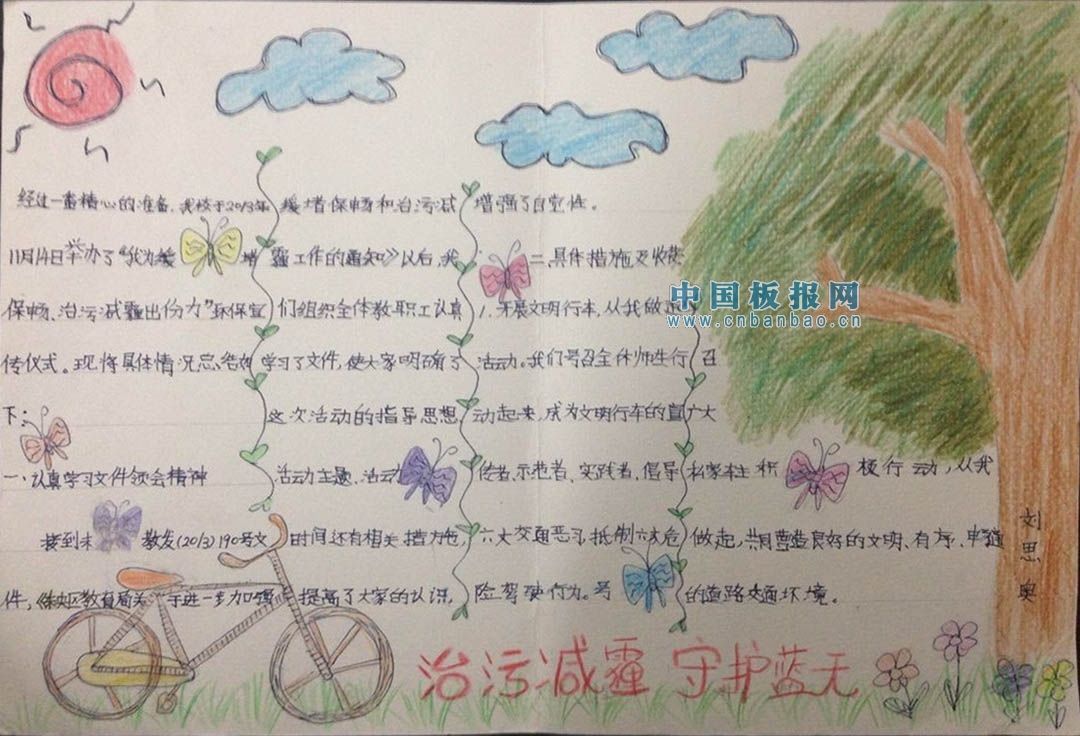 经过一番精心的准备,我校于2013年
11月14日举办了“我为缓 增
保畅、治污减霾出份力”环保宣
传仪式。现将具体情况总结如
下:
一、认真学习文件领会精神
接到未 教发(2013)190号文
件,《未央区教育局关于进一步加强
缓增保畅和治污减
霾工作的通知》以后,我
们组织全体教职工认真
学习了文件,使大家明确了
这次活动的指导思想、
活动主题、活动
时间还有相关措施,
提高了大家的认识,
增强了自觉性。
二、具体措施及收获
1.开展文明行车,从我做起
活动。我们号召全体师生行
动起来,成为文明行车的宣
传者、示范者、实践者、倡导
六大交通恶习,抵制六大危
险驾驶行为。号
召
广大
私家车主 积 极行动,从我
做起,共同营造良好的文明、有序、畅通
的道路交通环境。
刘思奥
治污减霾 守护蓝天
中国板报网
www.cnbanbao.cn